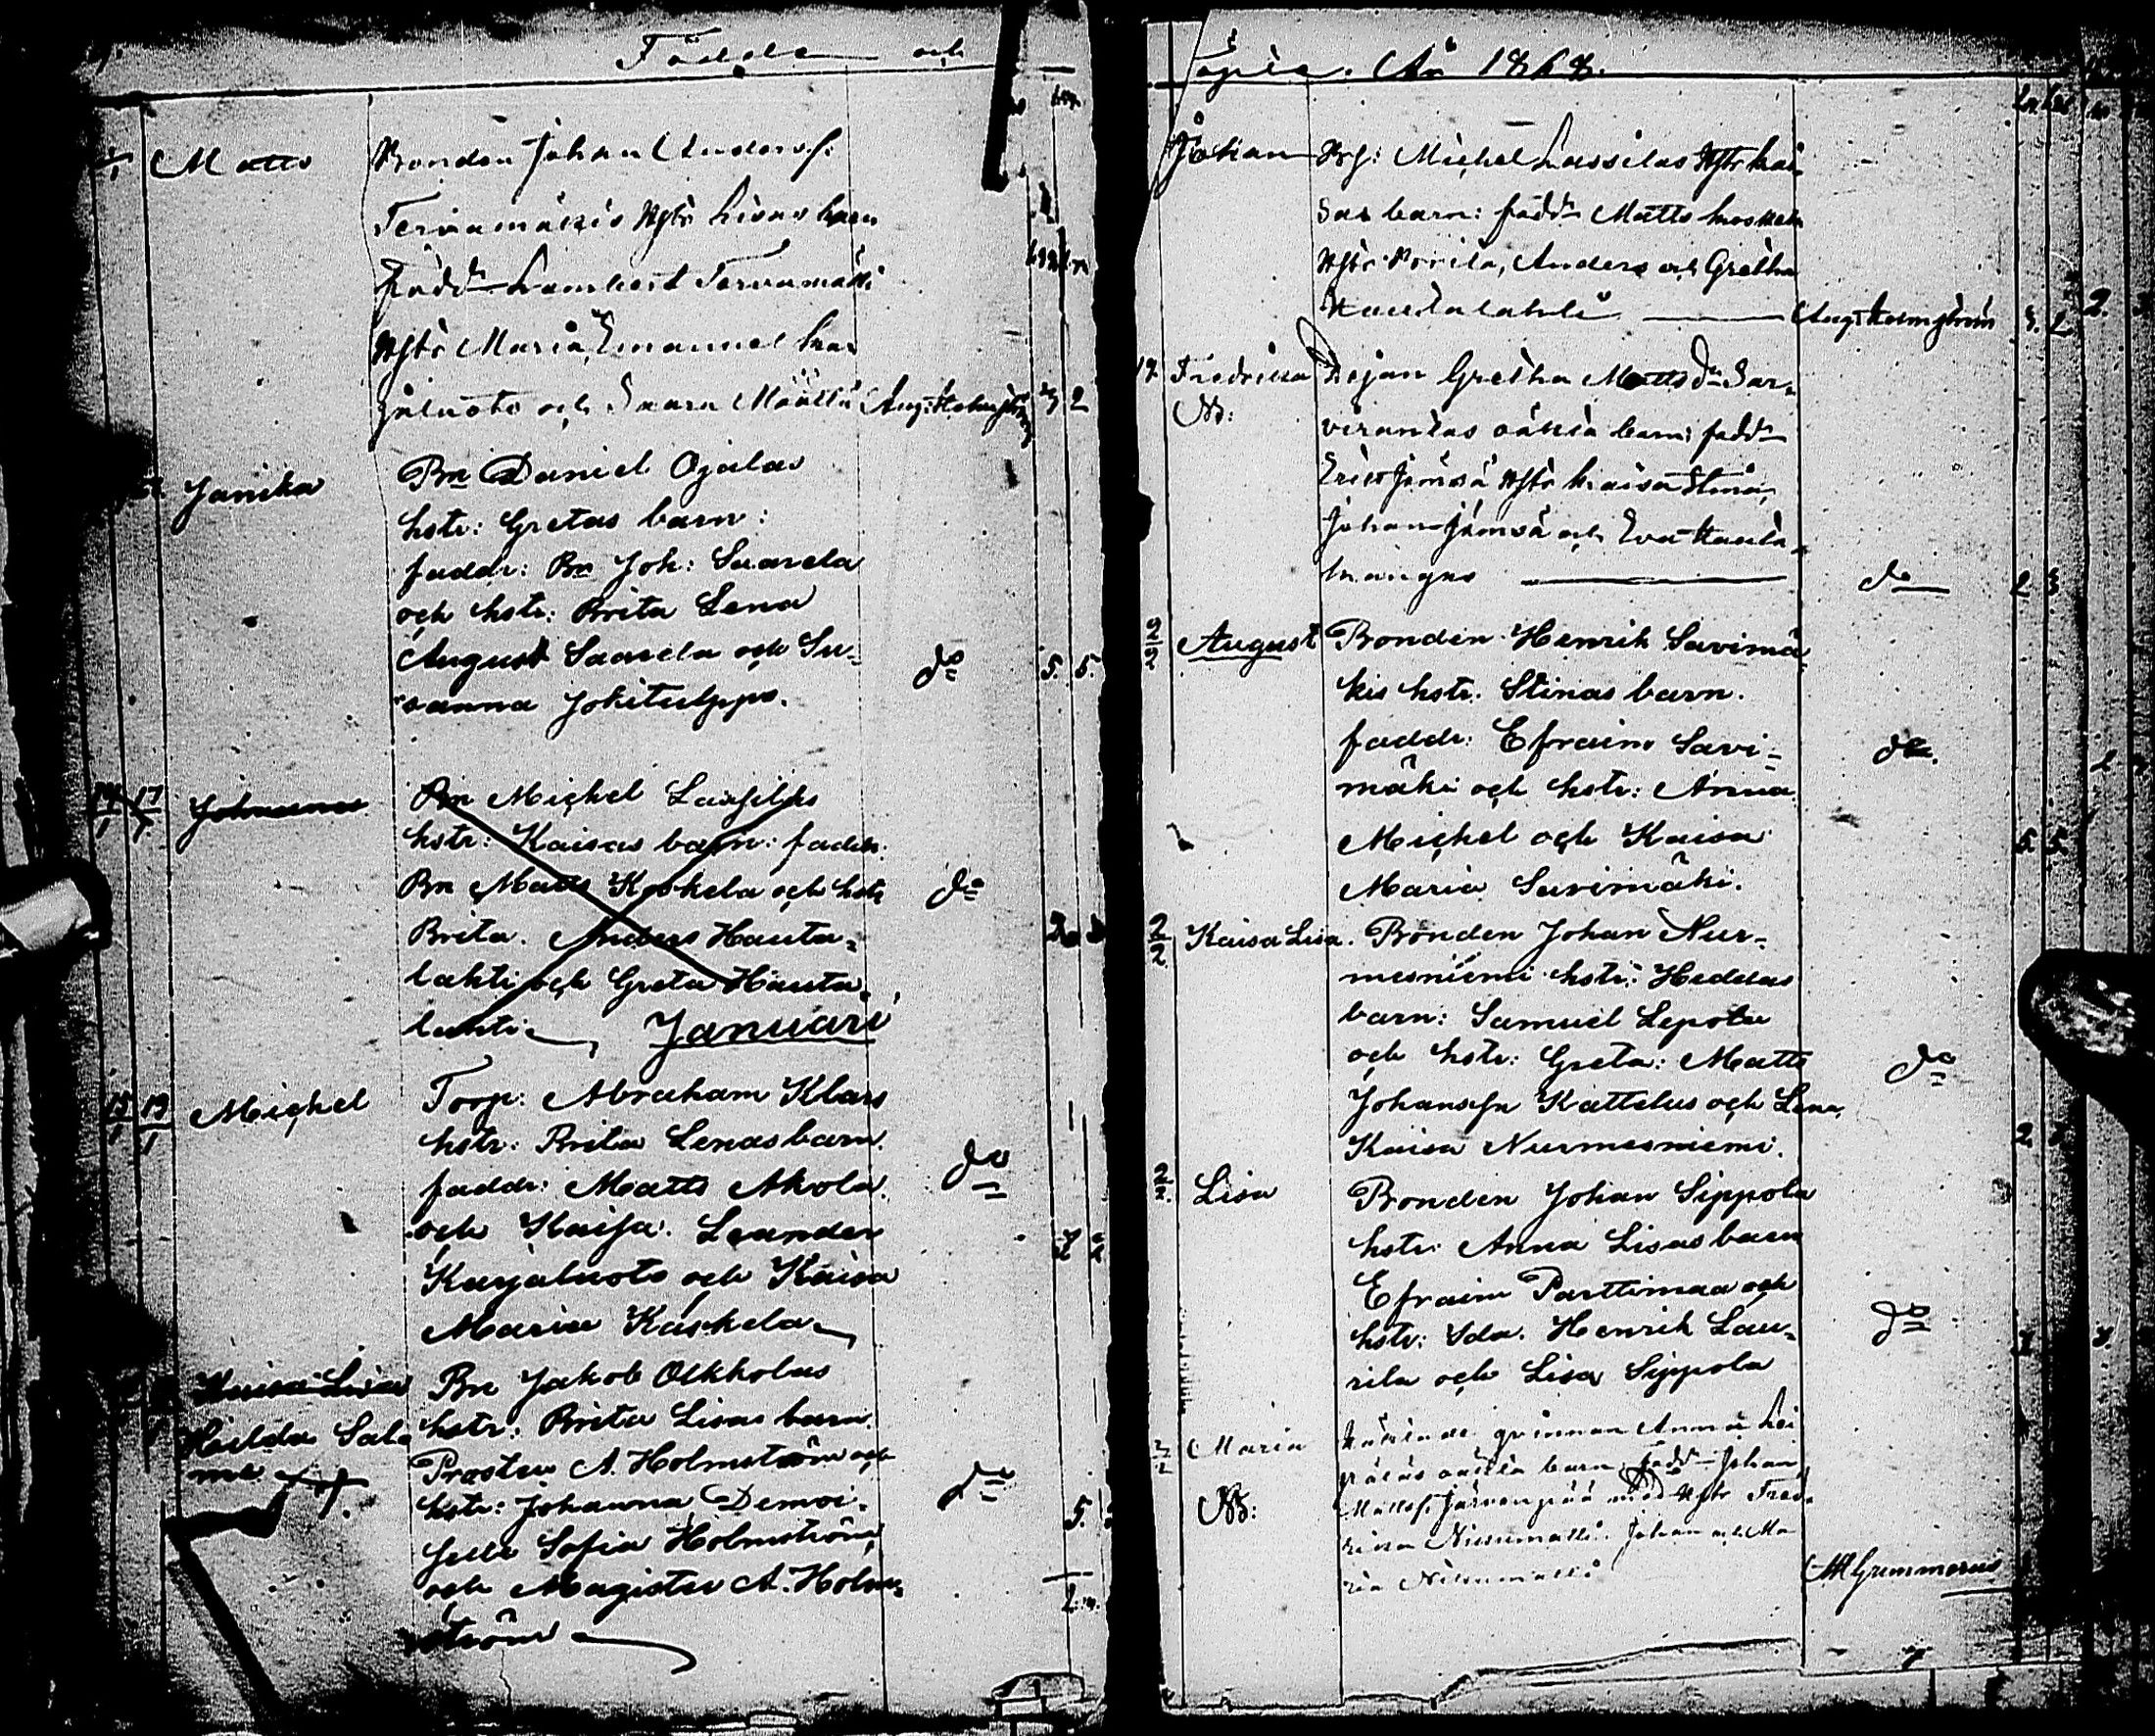 Födde och
Matts
Bonden Johan Anderss:
Tervamäkis Hstr Lisas barn
fadd Lambert Tervamäki
Hstr Maria, Emanuel Kar
jaluoto och Saara Määttä Aug. Holmström 2
Janika
Bn Daniel Ojalas
hstr: Gretas barn:
faddr: Bn Joh: Saarela
och hstr: Brita Lena
August Saarela och Su-
sanna Jokitulppo. do 5. 5.
17
Johanna
Bn Michel Lassilas
hstr: Kaisas barn: faddr.
Bn Matts Koskela och hstr do
Brita. Anders Hauta-
lahti och Greta Hauta-
lahti Januari
15/1 19/1 Michel
Torp: Abraham Klars
hstr: Brita Lenas barn
faddr: Matts Akola do
och Kaisa. Leander
Karjaluoto och Kaisa
Maria Kaskela
Kaisa Lisa
Hilda Salo
me
Bn Jakob Olkkolas
hstr: Brita Lisas barn
Prosten A. Holmström och
hstr: Johanna Demoi- do
selle Sofia Holmström 5.
och Magister A. Holm-
ström
Döpte. År 1868.
Johan
Bs: Michel Lassilas Hstr Kai
sas barn: fadd Matts Koskela
Hstr Brita, Anders och Gretha
Hautalahti Aug. Holmström 2
Fredrika
NB:
Pigan Gretha Mattsdr Sar-
virantas oäkta barn: fadd
Erik Jämsä Hstr Kaisa Stina,
Johan Jämsä och Eva Hauta
kangas do 2
2/2 August
Bonden Henrik Savimä-
kis hstr. Stinas barn.
faddr: Efraim Savi- do.
mäki och hstr: Anna
Michel och Kaisa 5. 5.
Maria Savimäki.
2/2 Kaisa Lisa.
Bonden Johan Nur-
mesniemi hstr: Heddas
barn: Samuel Lepola
och hstr: Greta: Matts do
Johanssn Kattelus och Lena
Kaisa Nurmesniemi. 2.
2/2. Lisa
Bonden Johan Sippola
hstr: Anna Lisas barn
Efraim Parttimaa och
hstr: Ida. Henrik Lau- do
rila och Lisa Sippola
Maria
NB:
qvinnan Anna Lei
oäkta barn, fadd Johan
Mattss. Järvenpää med Hstr Fred
rika Niskamatti. Johan och Ma
ria
Gummerus